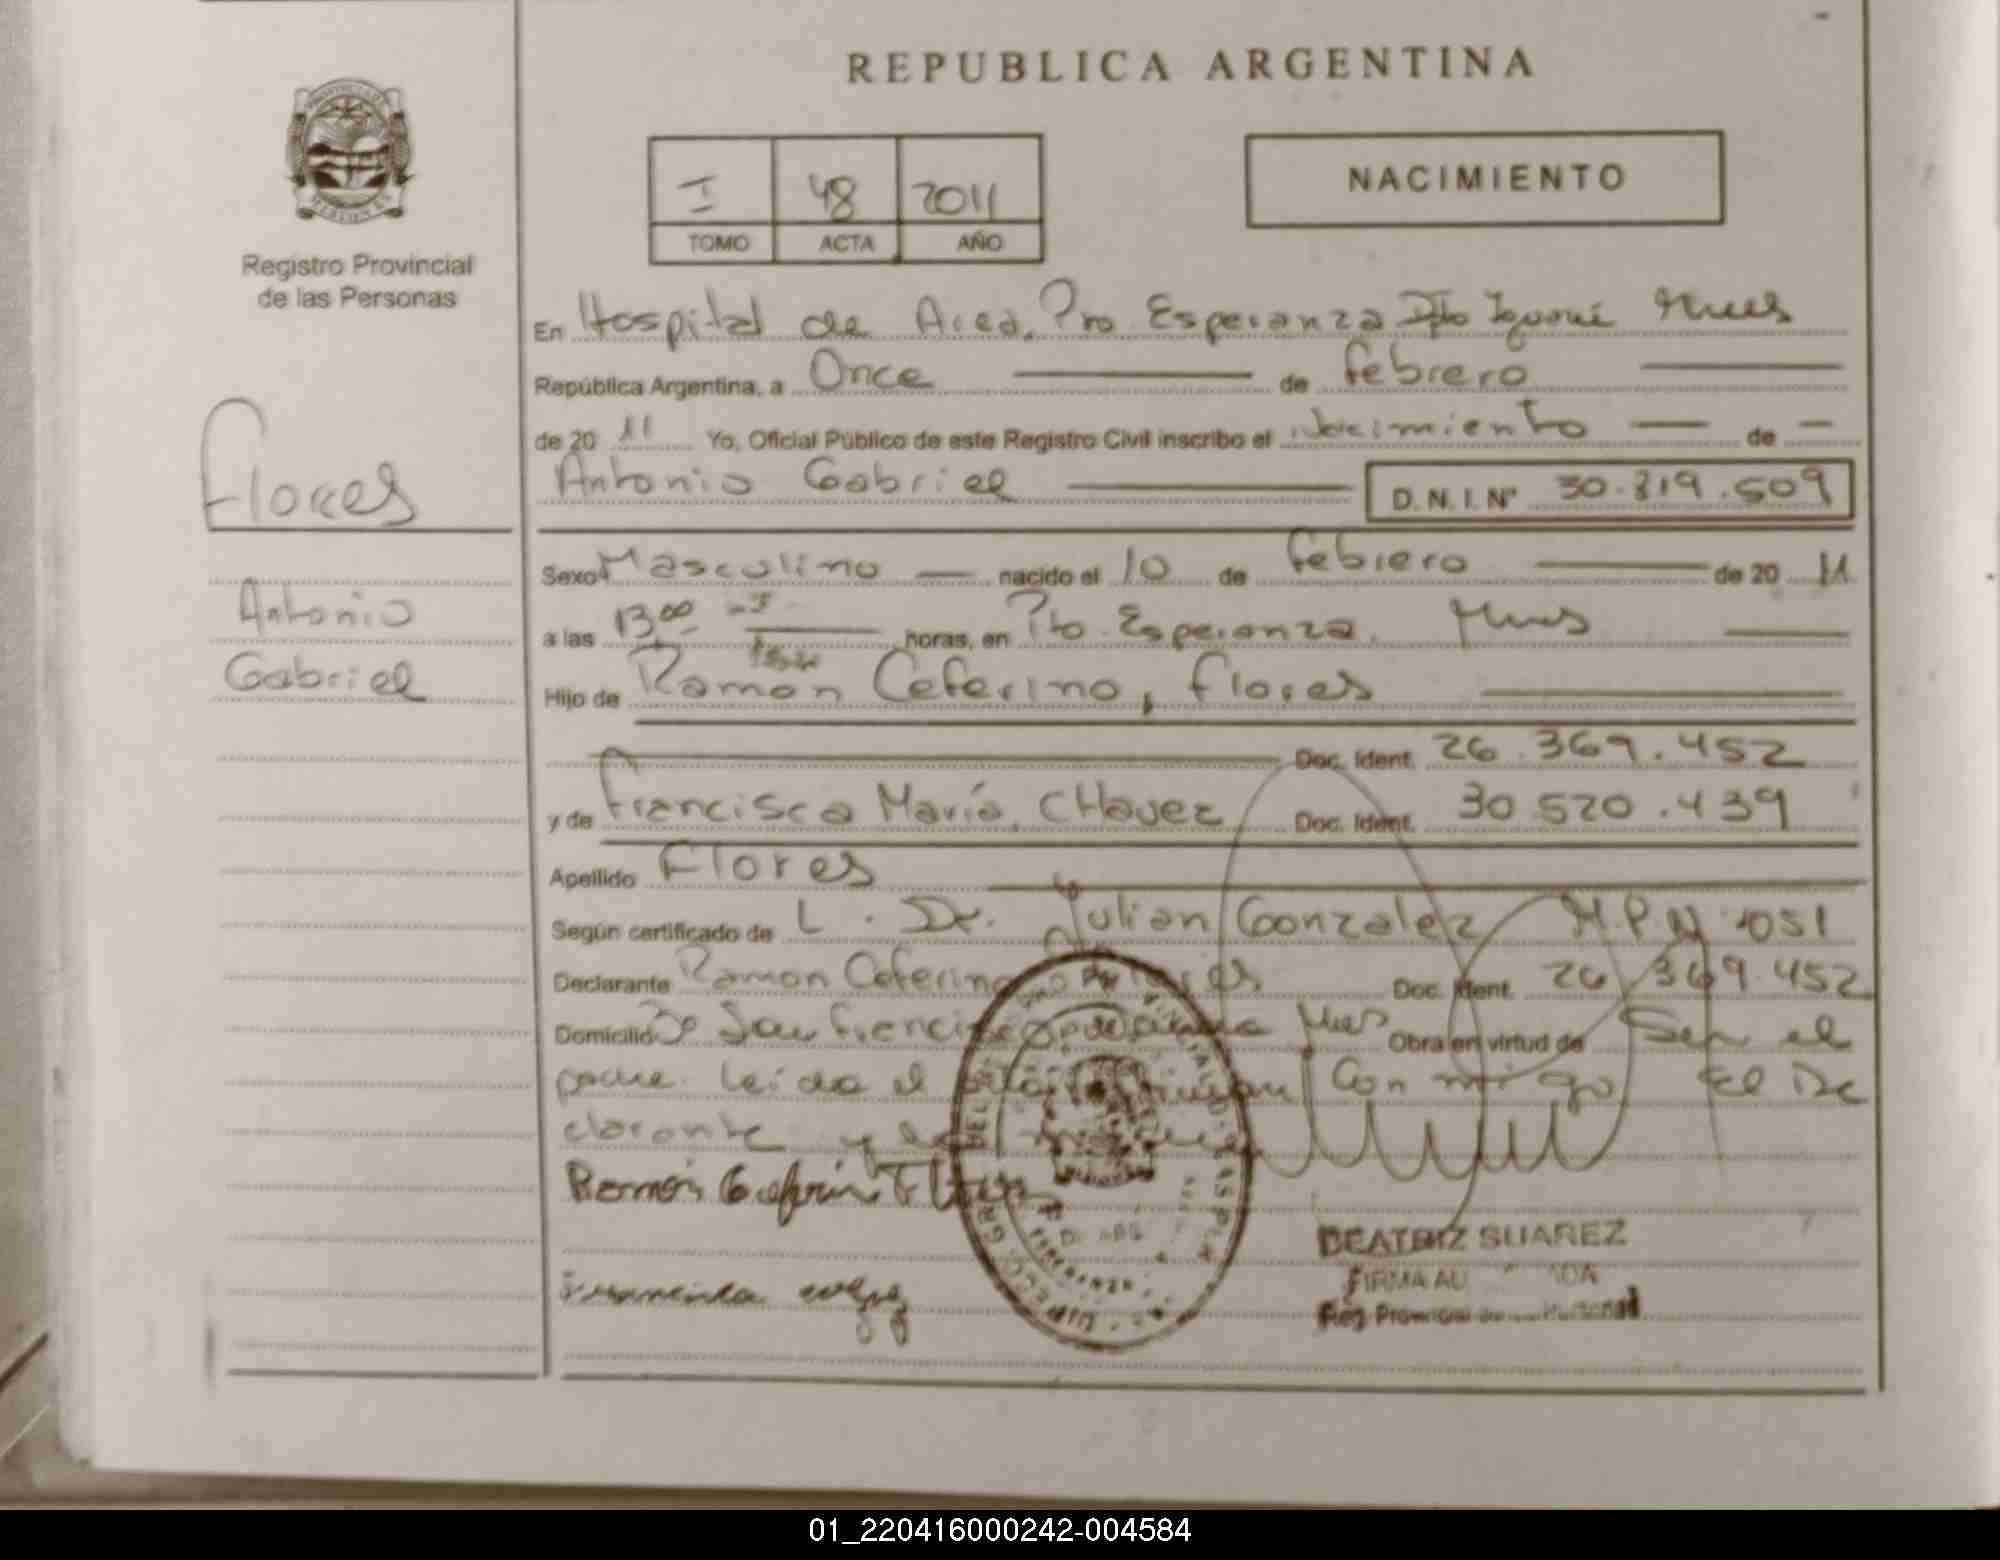 REPUBLICA ARGENTINA
Registro Provincial
de las Personas
I 48 2011
TOMO ACTA AÑO
NACIMIENTO
En Hospital de Area Pto Esperanza Dpto Iguazú Mnes
República Argentina, a Once de febrero
de 20 11 Yo, Oficial Público de este Registro Civil inscribo el Nacimiento de
Antonio Gabriel D. N. I. Nº 50.819.509
Flores
Antonio
Gabriel
Sexo Masculino nacido el 10 de febrero de 20 11
a las 13,00 horas, en Pto. Esperanza. Mnes
Hijo de Ramon Ceferino, Flores
Doc. Ident. 26.369.452
y de Francisca María, CHavez Doc. Ident. 30.520.439
Apellido Flores
Según certificado de L. Dr. Julian Gonzalez M.P.N 1051
Declarante Ramon Ceferino Flores Doc. Ident. 26.369.452
Domicilio Bº San Francisco Mnes Obra en virtud de Ser el
padre. Leida el Con migo El De
clarante y la
Ramón Ceferino Flores
BEATRIZ SUAREZ
FIRMA
Reg. Provincial
01_220416000242-004584